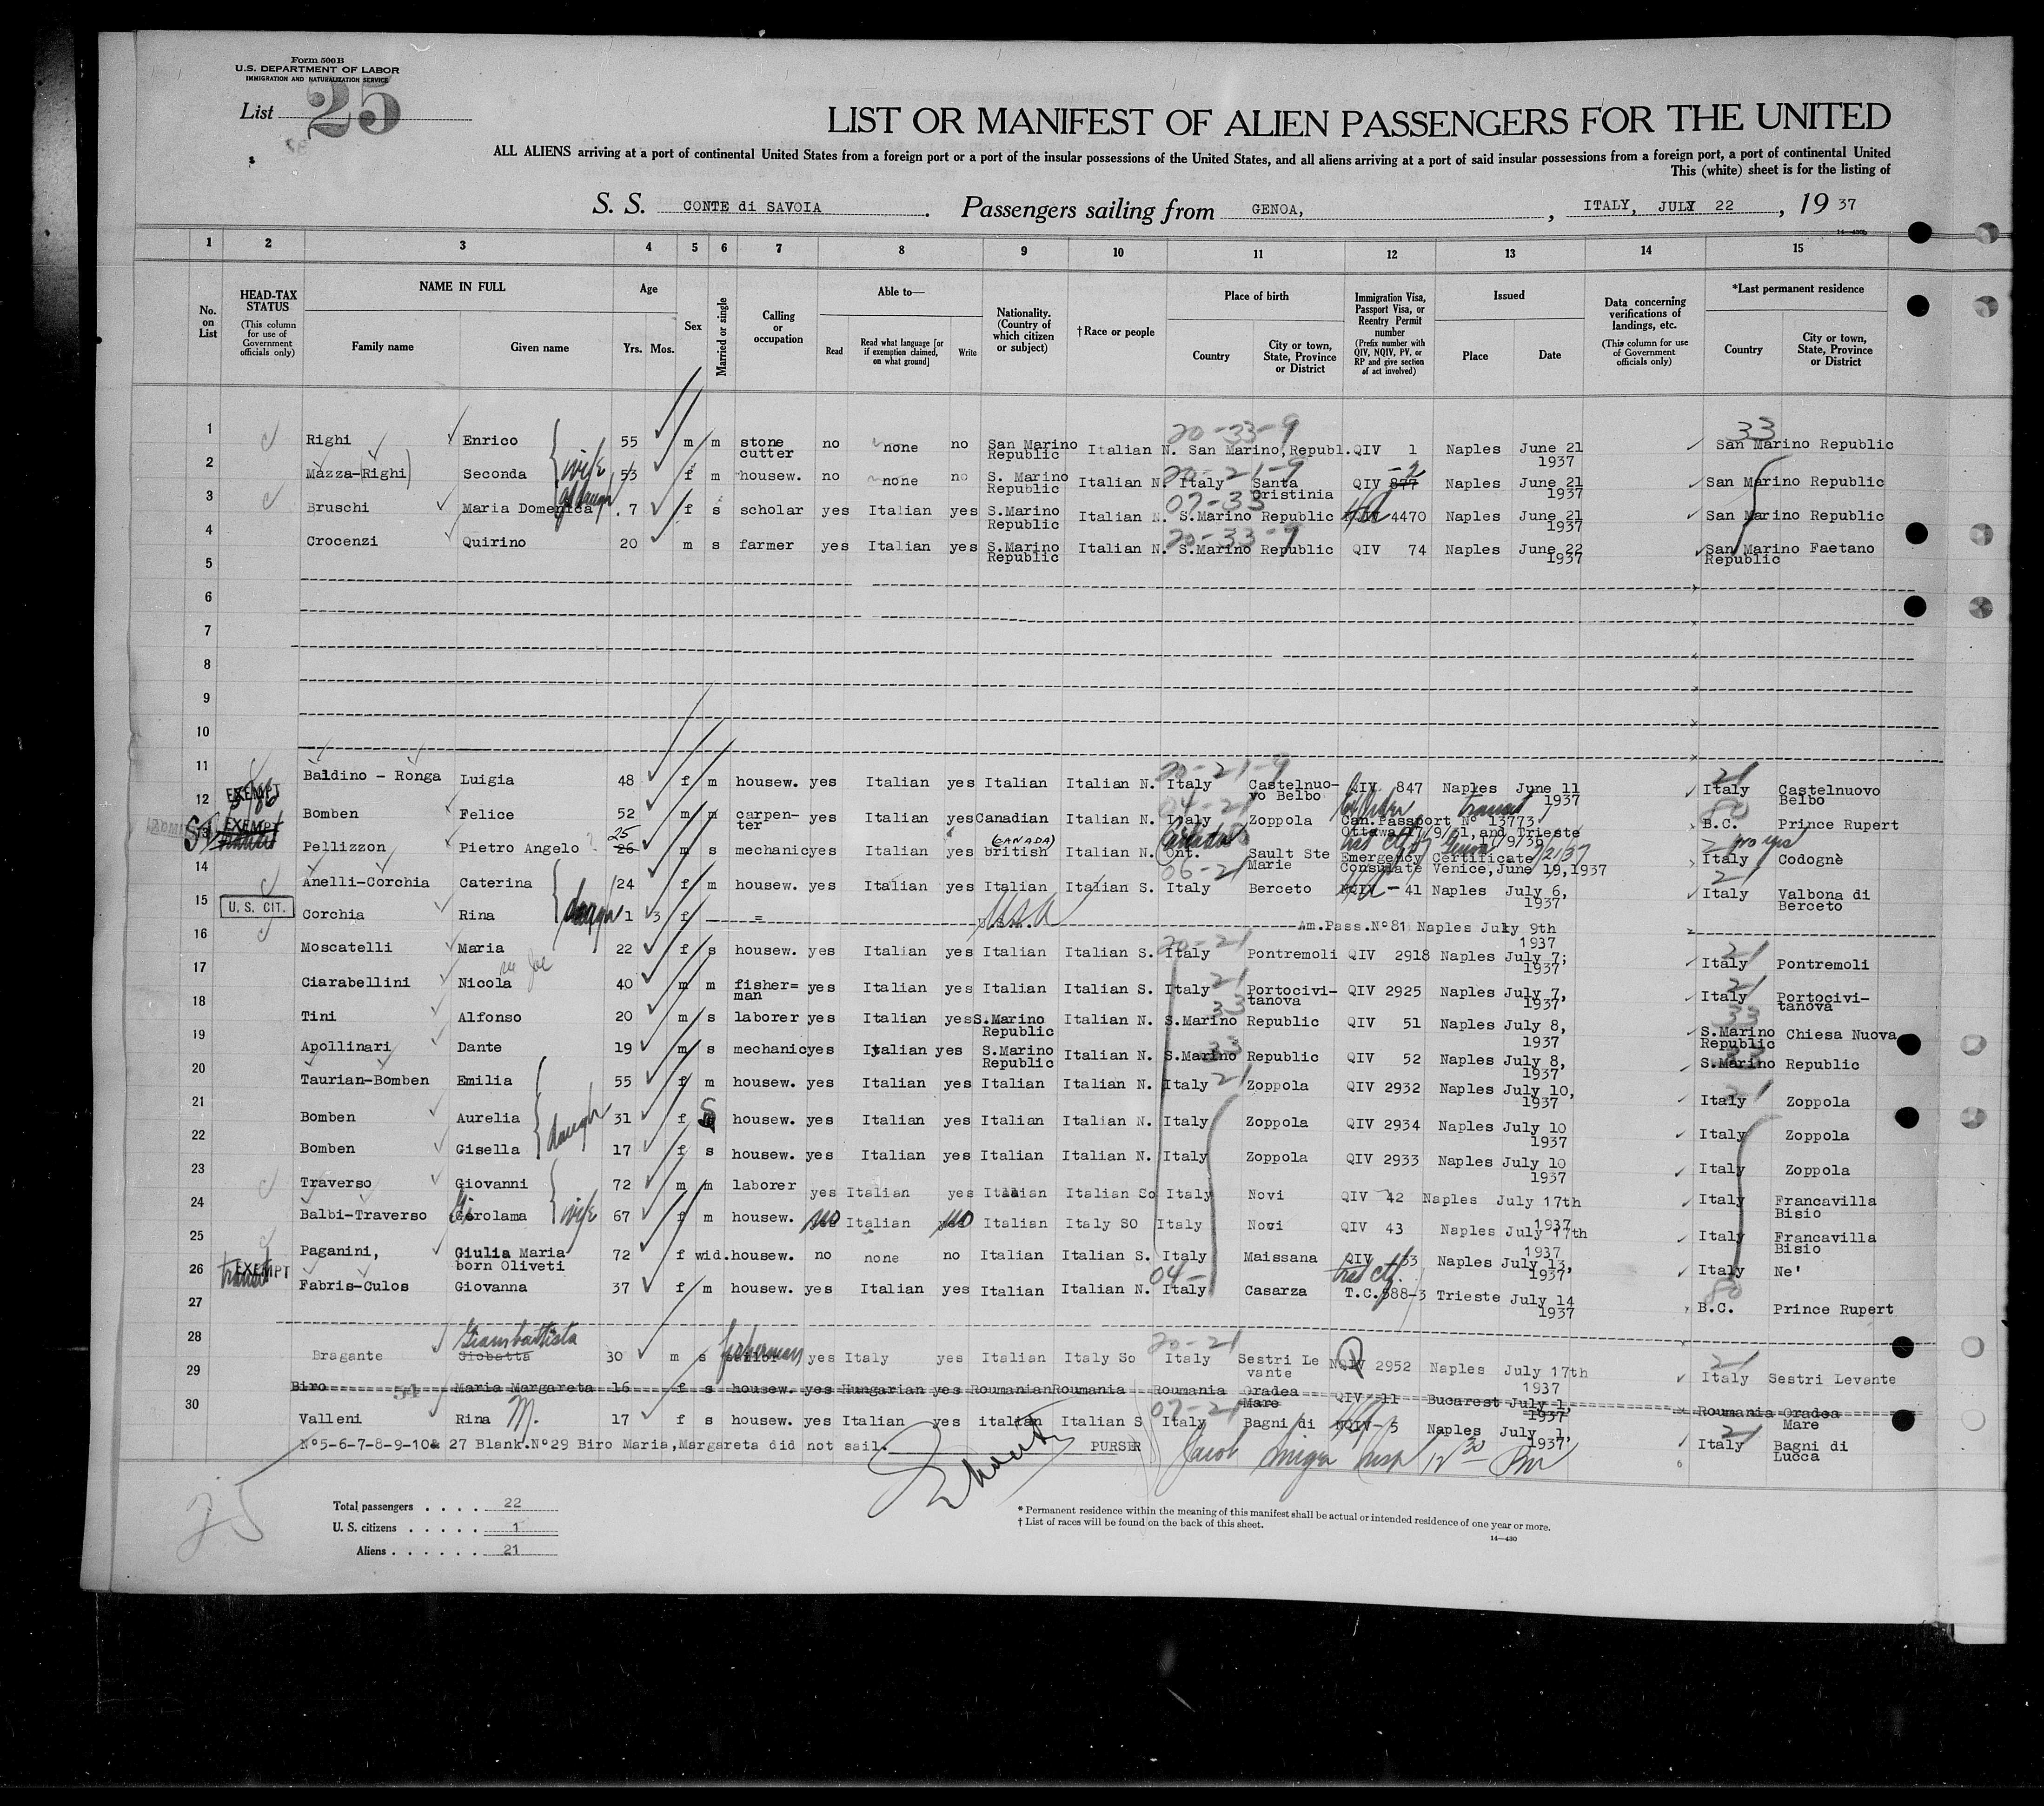 Form 500 B
U.S. DEPARTMENT OF LABOR
IMMIGRATION AND NATURALIZATION SERVICE
List 25
LIST OR MANIFEST OF ALIEN PASSENGERS FOR THE UNITED
ALL ALIENS arriving at a port of continental United States from a foreign port or a port of the insular possessions of the United States, and all aliens arriving at a port of said insular possessions from a foreign port, a port of continental United
This (white) sheet is for the listing of
S. S. CONTE di SAVOIA. Passengers sailing from GENOA, , ITALY, JULY 22, 19 37
14—430b
1 2 3 4 5 6 7 8 9 10 11 12 13 14 15
No. on List
HEAD-TAX STATUS (This column for use of Government officials only)
NAME IN FULL
Family name Given name
Age
Yrs. Mos.
Sex
Married or single
Calling or occupation
Able to—
Read
Read what language [or if exemption claimed, on what ground]
Write
Nationality. (Country of which citizen or subject)
† Race or people
Place of birth
Country
City or town, State, Province or District
Immigration Visa, Passport Visa, or Reentry Permit number (Prefix number with QIV, NQIV, PV, or RP and give section of act involved)
Issued
Place Date
Data concerning verifications of landings, etc. (This column for use of Government officials only)
*Last permanent residence
Country
City or town, State, Province or District
20-33-9 33
1 Righi Enrico 55 m m stone cutter no none no San Marino Republic Italian N. San Marino,Republ. QIV 1 Naples June 21 1937 San Marino Republic
2 Mazza-(Righi) Seconda wife 53 f m housew. no none no S. Marino Republic Italian N. 20-21-9 Italy Santa Cristinia QIV 877 -2 Naples June 21 1937 San Marino Republic
3 Bruschi Maria Domenica 7 f s scholar yes Italian yes S.Marino Republic Italian N. 07-33 S.Marino Republic 4470 Naples June 21 1937 San Marino Republic
4 Crocenzi Quirino 20 m s farmer yes Italian yes S.Marino Republic Italian N. 20-33-9 S.Marino Republic QIV 74 Naples June 22 1937 San Marino Faetano Republic
5
6
7
8
9
10
11 Baldino - Ronga Luigia 48 f m housew. yes Italian yes Italian Italian N. 20-21-9 Italy Castelnuo-vo Belbo QIV 847 Naples June 11 1937 21 Italy Castelnuovo Belbo
12 EXEMPT Bomben Felice 52 m m carpen-ter yes Italian yes Canadian Italian N. 04-21 Italy Zoppola transit Can.Passport N° 13773 80 B.C. Prince Rupert
13 EXEMPT Pellizzon Pietro Angelo 25 26 m s mechanic yes Italian yes (CANADA) british Italian N. Canada Ont. Sault Ste Marie Emergency Certificate Consulate Venice,June 19,1937 Italy Codognè
14 Anelli-Corchia Caterina 24 f m housew. yes Italian yes Italian Italian S. 06-21 Italy Berceto 41 Naples July 6, 1937, 21 Italy Valbona di Berceto
15 U. S. CIT. Corchia Rina 1 3 f = USA Am.Pass.N°81 Naples July 9th 1937
16 Moscatelli Maria 22 f s housew. yes Italian yes Italian Italian S. 20-21 Italy Pontremoli QIV 2918 Naples July 7; 1937 21 Italy Pontremoli
17 Ciarabellini Nicola 40 m m fisher=man yes Italian yes Italian Italian S. Italy 21 Portocivi-tanova QIV 2925 Naples July 7, 1937 21 Italy Portocivi-tanova
18 Tini Alfonso 20 m s laborer yes Italian yes S.Marino Republic Italian N. 33 S.Marino Republic QIV 51 Naples July 8, 1937 33 S.Marino Republic Chiesa Nuova
19 Apollinari Dante 19 m s mechanic yes Italian yes S.Marino Republic Italian N. 33 S.Marino Republic QIV 52 Naples July 8, 1937 33 S.Marino Republic
20 Taurian-Bomben Emilia 55 f m housew. yes Italian yes Italian Italian N. Italy 21 Zoppola QIV 2932 Naples July 10, 1937 21 Italy Zoppola
21 Bomben Aurelia daugh 31 f S housew. yes Italian yes Italian Italian N. Italy Zoppola QIV 2934 Naples July 10 1937 Italy Zoppola
22 Bomben Gisella 17 f s housew. yes Italian yes Italian Italian N. Italy Zoppola QIV 2933 Naples July 10 1937 Italy Zoppola
23 Traverso Giovanni 72 m m laborer yes Italian yes Italian Italian So Italy Novi QIV 42 Naples July 17th 1937 Italy Francavilla Bisio
24 Balbi-Traverso Gerolama wife 67 f m housew. no Italian no Italian Italy SO Italy Novi QIV 43 Naples July 17th 1937 Italy Francavilla Bisio
25 Paganini, Giulia Maria born Oliveti 72 f wid. housew. no none no Italian Italian S. Italy Maissana QIV 33 Naples July 13, 1937 Italy Ne'
26 EXEMPT transit Fabris-Culos Giovanna 37 f m housew. yes Italian yes Italian Italian N. 04- Italy Casarza T.C. 888-3 Trieste July 14 1937 80 B.C. Prince Rupert
27
28 Bragante Giambattista Giobatta 30 m s fisherman yes Italy yes Italian Italy So 20-21 Italy Sestri Levante 2952 Naples July 17th 1937 21 Italy Sestri Levante
29 Biro Maria Margareta 16 f s housew. yes Hungarian yes Roumanian Roumania Roumania Oradea Mare QIV 11 Bucarest July 1, 1937 Roumania Oradea Mare
30 Valleni Rina M. 17 f s housew. yes Italian yes italian Italian S 07-21 Italy Bagni di 5 Naples July 1, 1937 21 Italy Bagni di Lucca
N°5-6-7-8-9-10& 27 Blank.N°29 Biro Maria,Margareta did not sail. PURSER
25
Total passengers . . . . 22
U. S. citizens . . . . . 1
Aliens . . . . . . 21
* Permanent residence within the meaning of this manifest shall be actual or intended residence of one year or more.
† List of races will be found on the back of this sheet.
14—430